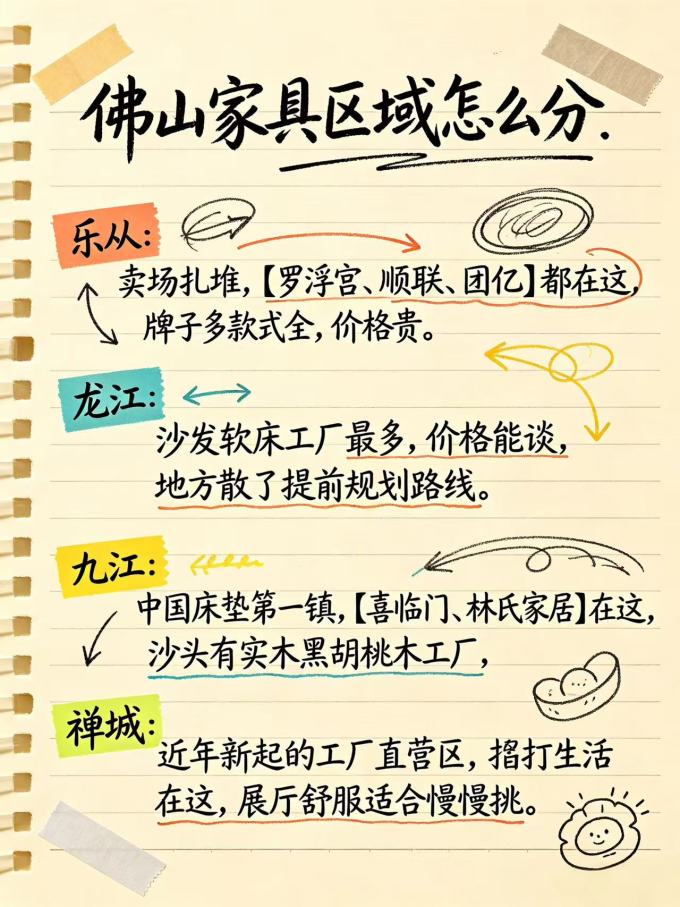 佛山家具区域怎么分.
乐从:
卖场扎堆,【罗浮宫、顺联、团亿】都在这,
牌子多款式全,价格贵。
龙江:
沙发软床工厂最多,价格能谈,
地方散了提前规划路线。
九江:
中国床垫第一镇,【喜临门、林氏家居】在这,
沙头有实木黑胡桃木工厂,
禅城:
近年新起的工厂直营区,㨘打生活
在这,展厅舒服适合慢慢挑。